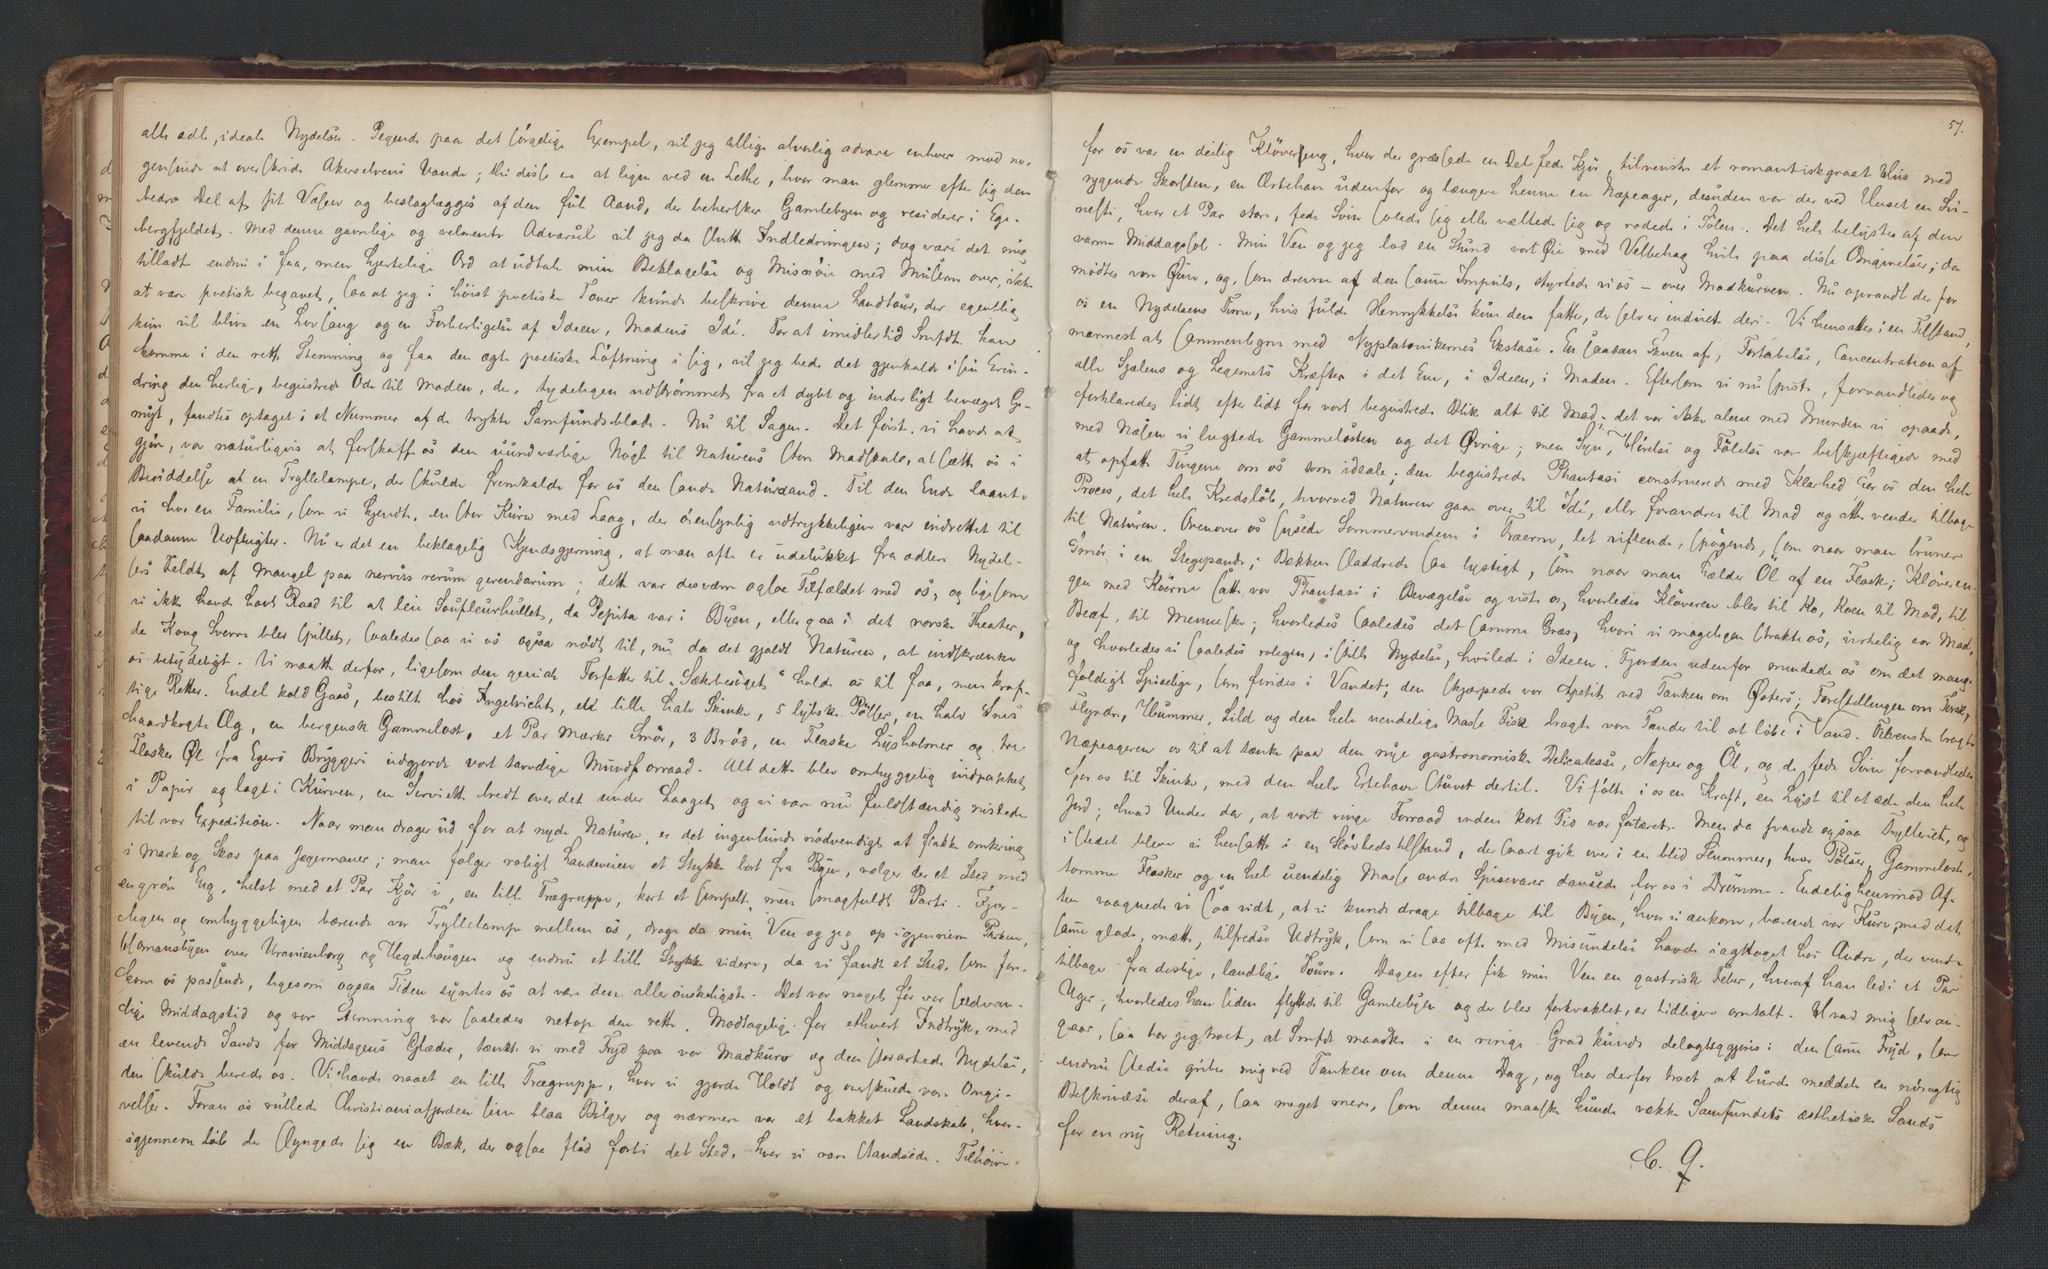 alle ædle, ideale Nydelser. Pegende paa det sørgelige Exempel, vil jeg tillige alvorlig advare enhver mod no-
gensinde at overskride Akerselvens Vande; thi disse er at ligne ved en Lethe, hvor man glemmer efter sig den
bedre Del af sit Væsen og beslaglægges af den fule Aand, der behersker Gamlebyen og residerer i Ege-
bergfjeldet. Med denne gavnlige og velmente Advarsel vil jeg da slutte Indledningen; dog være det mig
tilladt endnu i faa, men hjertelige Ord at udtale min Beklagelse og Mismod med Musern over, ikke
at være poetisk begavet, saa at jeg i høist poetiske Toner kunde beskrive denne Landtour, der egentlig
kun vil blive en Lovsang og en Forherligelse af Ideen, Madens Idé. For at imidlertid Smfdt. kan
komme i den rette Stemning og faa den ægte poetiske Løftning i sig, vil jeg bede det gjenkalde i sin Erin-
dring den herlige, begeistrede Ode til Maden, der, tydeligen udstrømmet fra et dybt og inderligt bevæget Ge-
myt, fandtes optaget i et Nummer af de trykte Samfundsblade. Nu til Sagen. Det første, vi havde at
gjøre, var naturligvis at forskaffe os den uundværlige Nøgle til Naturens store Madskaal, at sætte os i
Besiddelse af en Tryllelampe, der skulde fremkalde for os den sande Naturaand. Til den Ende laante
vi hos en Familie, som vi kjendte, en stor Kurv med Laag, der øiensynlig udtrykkeligen var indrettet til
saadanne Udflugter. Nu er det en beklagelig Kjendsgjerning, at man ofte er udelukket fra ædlere Nydel-
sers Feldt af Mangel paa nervus rerum gerendarum; dette var desværre ogsaa Tilfældet med os, og ligesom
vi ikke havde havt Raad til at leie Soufleurhullet, da Pepita var i Byen, eller gaa i det norske Theater,
da Kong Sverre blev spillet, saaledes saa vi os ogsaa nødt til, nu da det gjaldt Naturen, at indskrænke
os betydeligt. Vi maatte derfor, ligesom den geniale Forfatter til „Sækbesøget“ holde os til faa, men kraf-
tige Retter. Endel kold Gaas, bestilt hos Ingebricht, en lille halv Skinke, 5 lybske Pølser, en halv Snes
haardkogte Æg, en bergensk Gammelost, et Par Mærker Smør, 3 Brød, en Flaske Lysholmer og tre
Flasker Øl fra Egers Bryggeri udgjorde vort tarvelige Mundforraad. Alt dette blev omhyggelig indpakket
i Papir og lagt i Kurven, en Serviette bredt over det under Laaget og vi vare nu fuldstændig rustede
til vor Expedition. Naar man drager ud for at nyde Naturen, er det ingenlunde nødvendigt at flakke omkring
i Mark og Skov paa Jægermaner; man følger roligt Landeveien et Stykke bort fra Byen, vælger der et Sted med
en grøn Eng, helst med et Par Kjør i, en lille Trægruppe, kort et simpelt, men smagfuldt Parti. Kjær-
ligen og omhyggeligen bærende vor Tryllelampe mellem os, droge da min Ven og jeg op igjennem Parken,
Homansbyen over Uranienborg og Hegdehaugen og endnu et lille Stykke videre, da vi fandt et Sted, som fore-
kom os passende, ligesom ogsaa Tiden syntes os at være den allerønskeligste. Det var noget før vor sædvan-
lige Middagstid og vor Stemning var saaledes netop den rette. Modtagelige for ethvert Indtryk, med
en levende Sands for Middagens Glæder, tænkte vi med Fryd paa vor Madkurv og den storartede Nydelse,
den skulde berede os. Vi havde naaet en lille Trægruppe, hvor vi gjorde Holdt og overskuede vore Omgi-
velser. Foran os rullede Christianiafjorden sine blaa Bølger og nærmere var et bakket Landskab, hvor-
igjennem løb der slyngede sig en Bæk, der ogsaa flød forbi det Sted, hvor vi vare standsede. Tilhøire
57.
for os var en deilig Kløvereng, hvor der græssede en Del fede Kjør, tilvenstre et romantiskgraat Hus med
rygende Skorsten, en Ærtehave udenfor og længere henne en Næpeager, desuden var der ved Huset en Svi-
nesti, hvor et Par store, fede Svin solede sig eller væltede sig og rodede i Sølen. Det hele belystes af den
varme Middagssol. Min Ven og jeg lod en Stund vort Øie med Velbehag hvile paa disse Omgivelser; da
mødtes vore Øine, og, som drevne af den samme Impuls, styrtede vi os – over Madkurven. Nu oprandt der for
os en Nydelsens Time, hvis fulde Henrykkelse kun den fatter, der selv er indviet deri. Vi hensattes i en Tilstand,
nærmest at sammenligne med Nyplatonikernes Ekstase. En saadan Skuen af, Fortabelse, Concentration af
alle Sjælens og Legemets Kræfter i det Ene, i Ideen, i Maden. Eftersom vi nu spiste, forvandledes og
forklaredes lidt efter lidt for vort begeistrede Blik alt til Mad; det var ikke alene med Munden vi spiste,
med Næsen vi lugtede Gammelosten og det Øvrige; men Syn, Hørelse og Følelse var beskjæftigede med
at opfatte Tingene om os som ideale; den begeistrede Phantasi construerede med Klarhed for os den hele
Proces, det hele Kredsløb, hvorved Naturen gaar over til Idé, eller forandres til Mad og atter vender tilbage
til Naturen. Ovenover os susede Sommervinden i Træerne, let viftende, spøgende, som naar man bruner
Smør i en Stegepande; Bækken sladdrede saa lystigt, som naar man hælder Øl af en Flaske; Kløveren-
gen med Kjørne satte vor Phantasi i Bevægelse og viste os, hvorledes Kløveren blev til Ko, Koen til Mad, til
Beaf, til Mennesker; hvorledes saaledes det samme Græs, hvori vi mageligen strakte os, virkelig var Mad,
og hvorledes vi saaledes roligen, i stille Nydelse, hvilede i Ideen. Fjorden udenfor mindede os om det mang-
foldige Spiselige, som findes i Vandet; den skjærpede vor Apetit ved Tanken om Østers; Forestillingen om Torsk,
Flyndre, Hummer, Sild og den hele uendelige Masse Fisk bragte vore Tænder til at løbe i Vand. Tilvenstre bragte
Næpeageren os til at tænke paa den nye gastronomiske Delicatesse, Næper og Øl, og de fede Svin forvandledes
for os til Skinke, med den hele Ertehave stuvet dertil. Vi følte i os en Kraft, en Lyst til at æde den hele
Jord; hvad Under da, at vort ringe Forraad inden kort Tid var fortæret. Men da svandt ogsaa Trylleriet, og
istedet bleve vi hensatte i en Sløvhedstilstand, der snart gik over i en blid Slummer, hvor Pølser, Gammelost,
tomme Flasker og en hel uendelig Masse andre Spisevarer dansede for os i Drømme. Endelig henimod Af-
ten vaagnede vi saavidt, at vi kunde drage tilbage til Byen, hvor vi ankom, bærende vor Kurv, med det
samme glade, mætte, tilfredse Udtryk, som vi saa ofte med Misundelse havde iagttaget hos Andre, der vendte
tilbage fra deslige, landlige Toure. Dagen efter fik min Ven en gastrisk Feber, hvoraf han led i et Par
Uger; hvorledes han siden flyttede til Gamlebyen og der blev forkvaklet, er tidligere omtalt. Hvad mig selv an-
gaar, saa har jeg troet, at Smfdt maaske i en ringe Grad kunde delagtiggjøres i den samme Fryd, som
endnu stedse griber mig ved Tanken om denne Dag, og har derfor troet at burde meddele en nøiagtig
Beskrivelse deraf, saa meget mere, som denne maaske kunde vække Samfundets æsthetiske Sands
for en ny Retning.
C. Q.